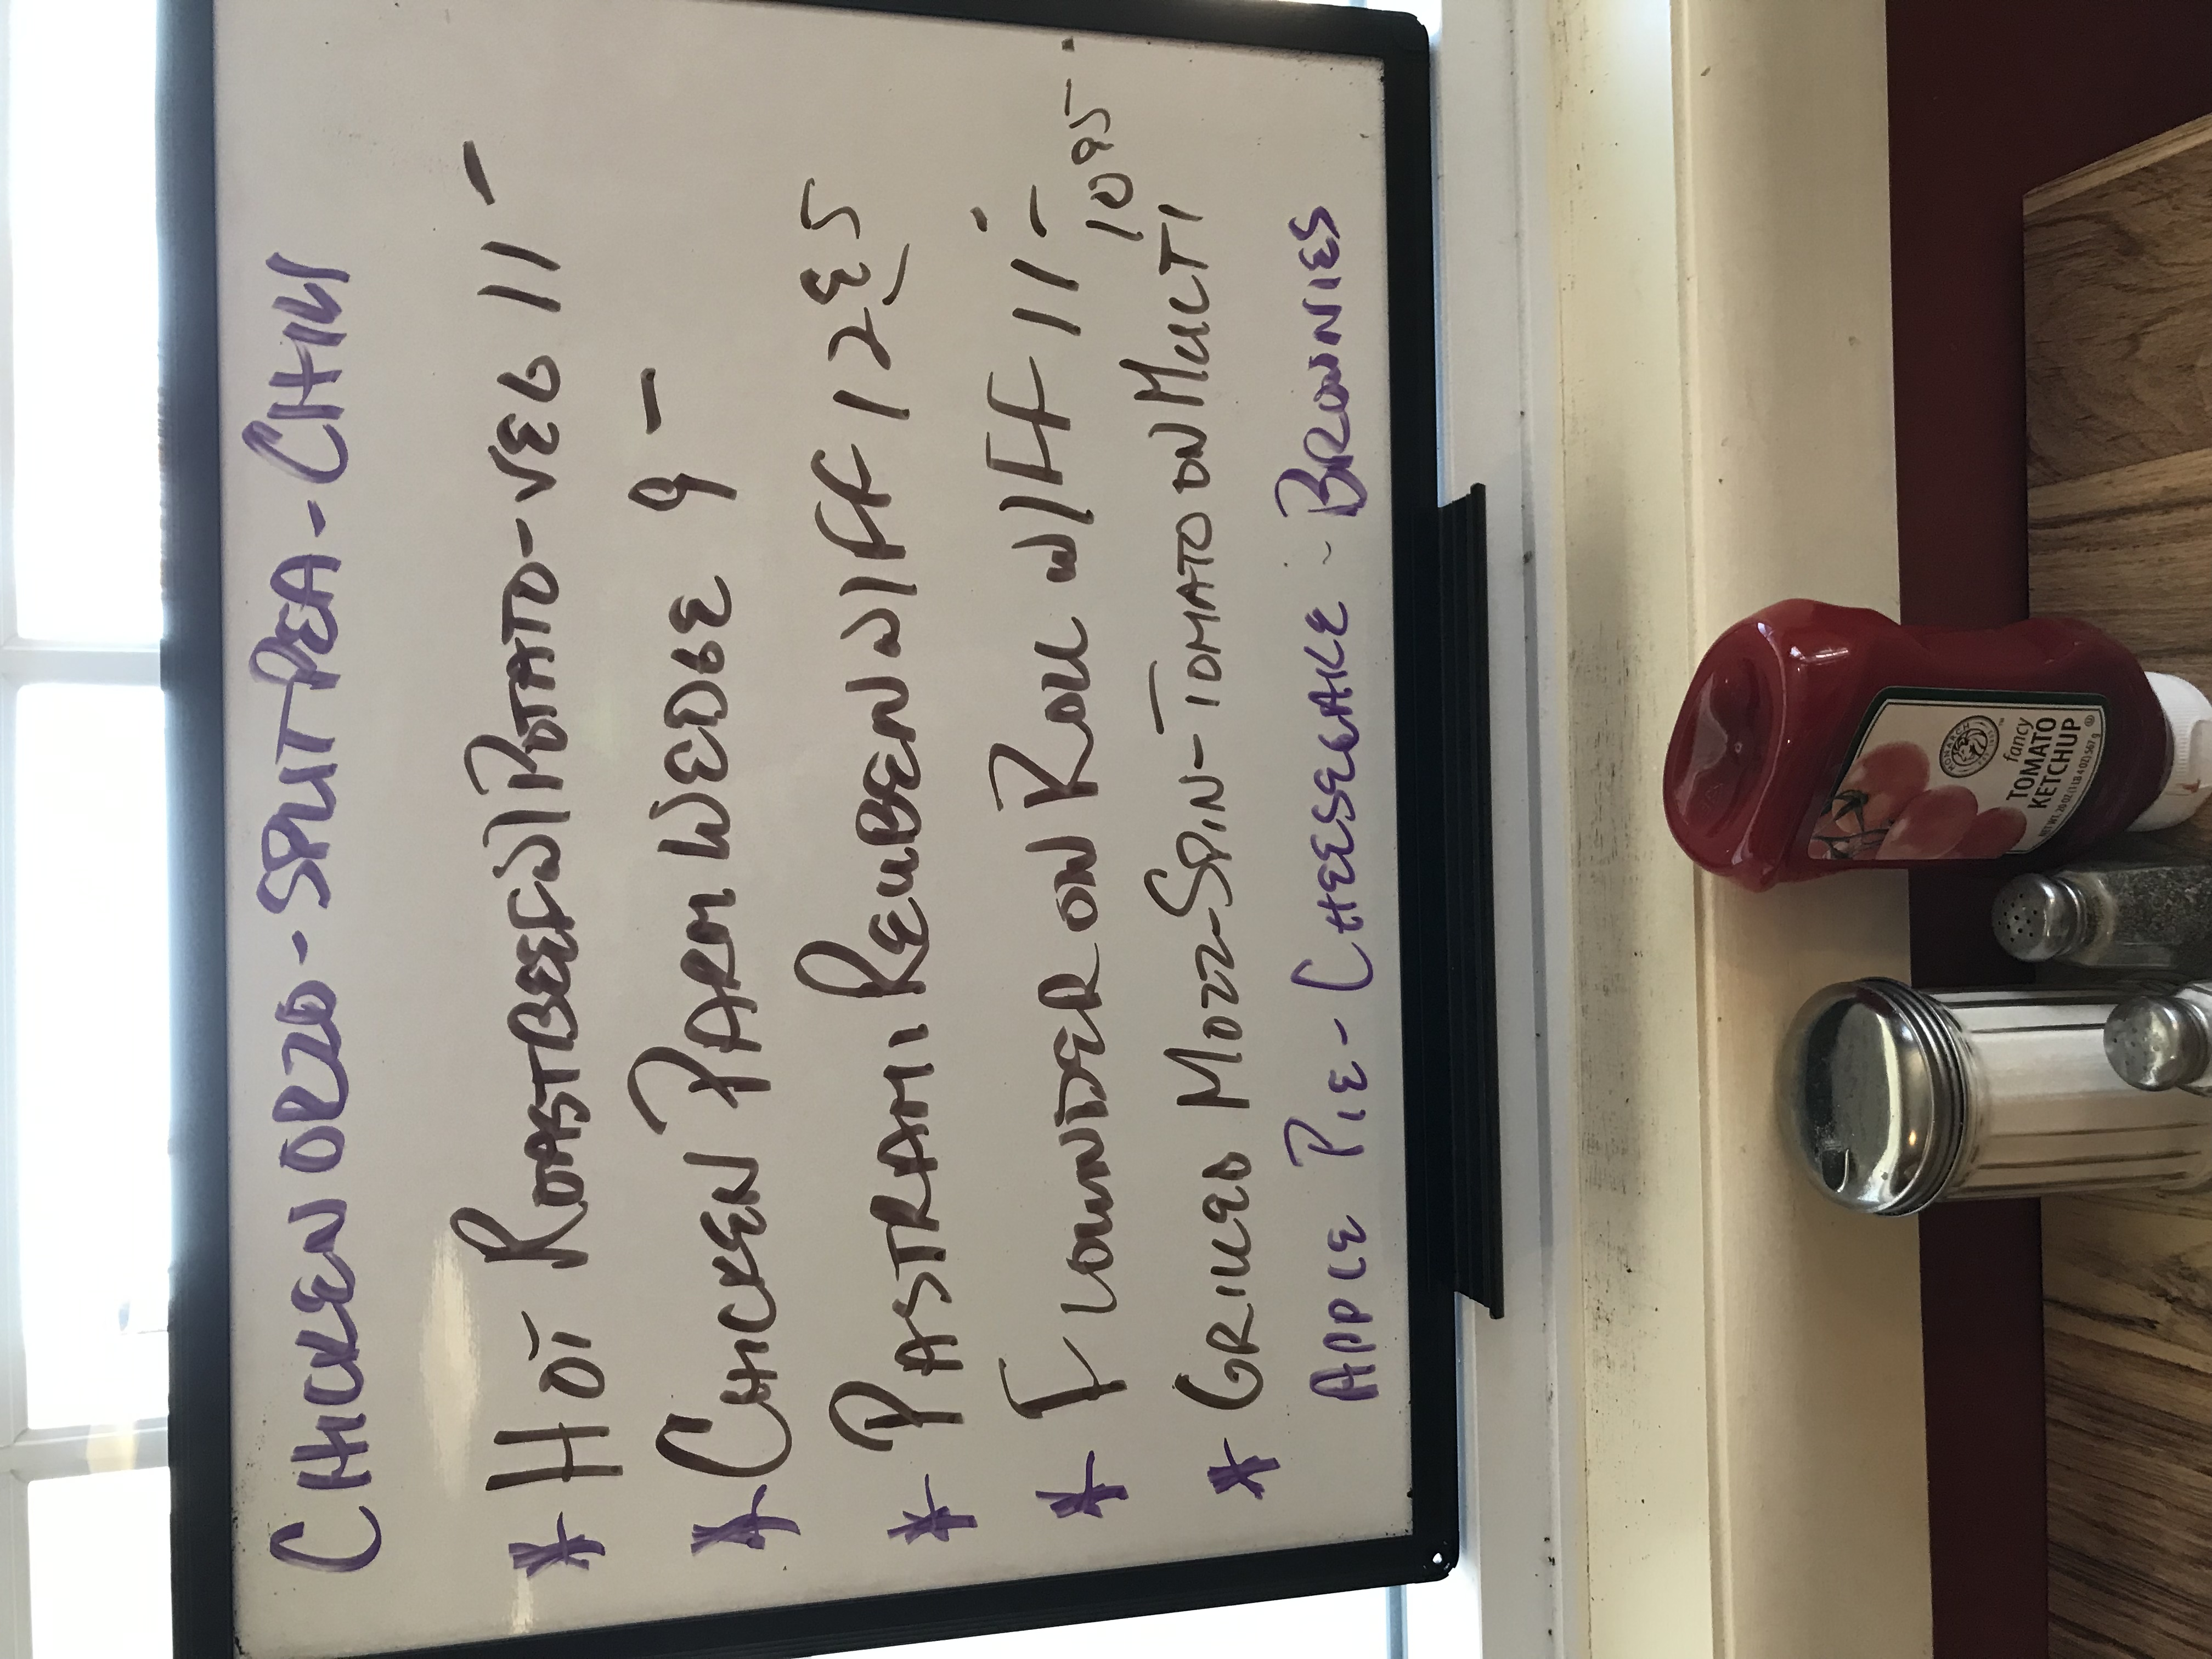 CHICKEN ORZO - SPLIT PEA - CHILI
* HOT ROASTBEEF W/ POTATO - VEG 11 -
* CHICKEN PARM WEDGE 9 -
* PASTRAMI REUBEN W/ FF 12 95
* FLOUNDER ON ROLL W/ FF 11 -
* GRILLED MOZZ - SPIN - TOMATO ON MULTI 10 95
APPLE PIE - CHEESECAKE - BROWNIES
MONARCH
fancy
TOMATO
KETCHUP
NET WT. 20 OZ (1 LB 4 OZ) 567 g